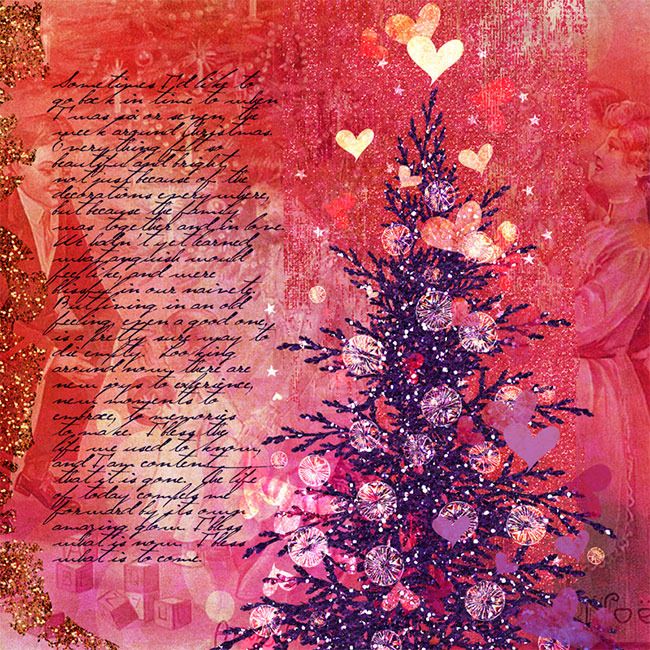 Sometimes I'd like to
go back in time to when
I was six or seven, the
week around Christmas.
Everything felt so
beautiful and bright,
not just because of the
decorations everywhere,
but because the family
was together and in love.
We hadn't yet learned
what anguish would
feel like, and were
blissful in our naivete.
But living in an old
feeling, even a good one,
is a pretty sure way to
die empty. Looking
around now, there are
new joys to experience,
new moments to
embrace, & memories
to make. I bless the
life we used to know,
and I am content
that it is gone. The life
of today compels me
forward by its own
amazing glow. I bless
what is now. I bless
what is to come.